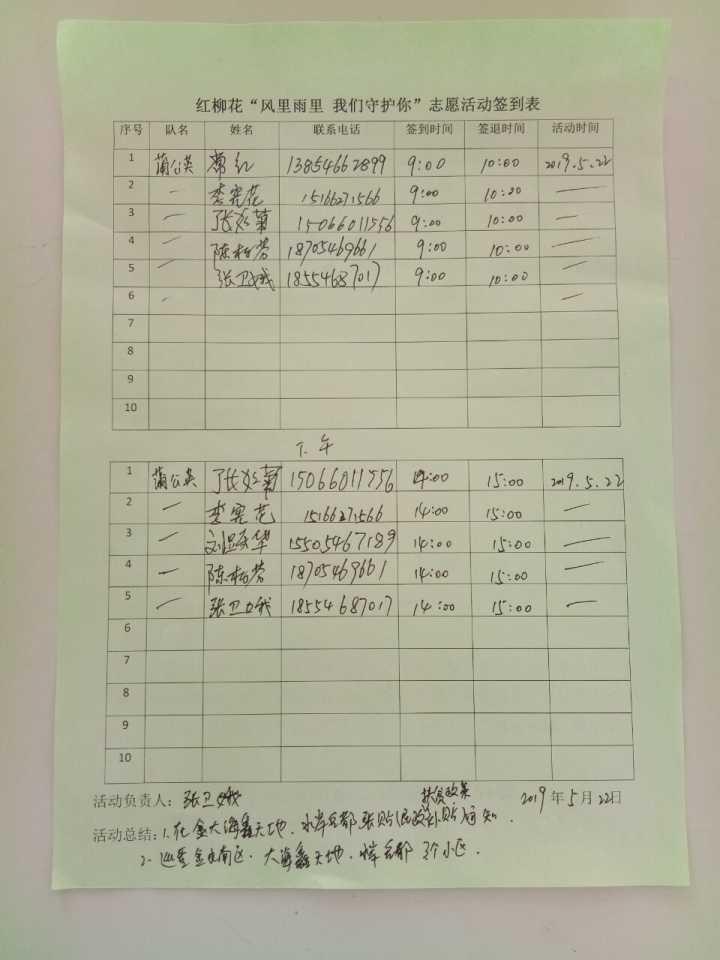 红柳花“风里雨里 我们守护你”志愿活动签到表
序号 队名 姓名 联系电话 签到时间 签退时间 活动时间
1 蒲公英 常红 13854662899 9:00 10:00 2019.5.22
2 一 李宪花 15166271566 9:00 10:00 一
3 一 张姣菊 15066011556 9:00 10:00 一
4 一 陈梅芳 18705469661 9:00 10:00 一
5 一 张卫娥 18554687017 9:00 10:00 一
6 一 一
7
8
9
10
下午
1 蒲公英 张姣菊 15066011556 14:00 15:00 2019.5.22
2 一 李宪花 15166271566 14:00 15:00 一
3 一 刘华 15505467189 14:00 15:00 一
4 一 陈梅芳 18705469661 14:00 15:00 一
5 一 张卫娥 18554687017 14:00 15:00 一
6
7
8
9
10
活动负责人:张卫娥 扶贫政策 2019年5月22日
活动总结:1.在金大海鑫天地.水岸名都张贴民政补贴通知.
2.金水南区.大海鑫天地.岸名都 3个小区.